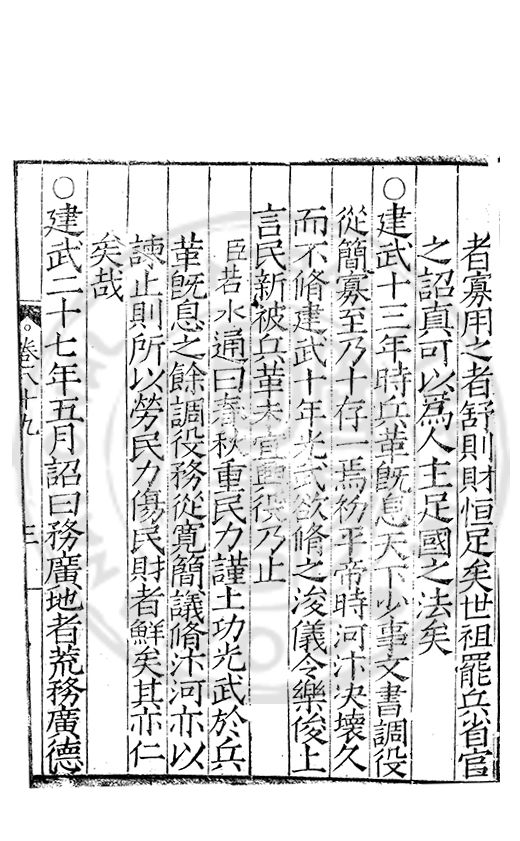 者寡用之者舒則財恒足矣世祖罷兵省官
之詔真可以爲人主足國之法矣
○建武十三年時兵革旣息天下少事文書調役
從簡寡至乃十存一焉初平帝時河汴決壞久
而不脩建武十年光武欲脩之浚儀令樂俊上
言民新被兵革未宜興役乃止
臣若水通曰春秋重民力謹土功光武於兵
革旣息之餘調役務從寛簡議脩汴河亦以
諫止則所以勞民力傷民財者鮮矣其亦仁
矣哉
○建武二十七年五月詔曰務廣地者荒務廣德
卷八十九
三